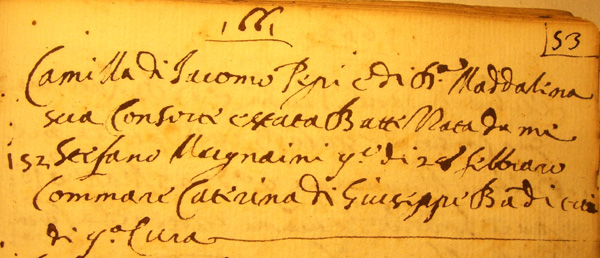 1661
53
Camilla di Iacomo Pepi e di Mª Maddalina
sua Consorte e stata Battezzata da me
152 Stefano Mugnaini qº di 28 febbraro
Commare Caterina di Giuseppe
di qª Cura